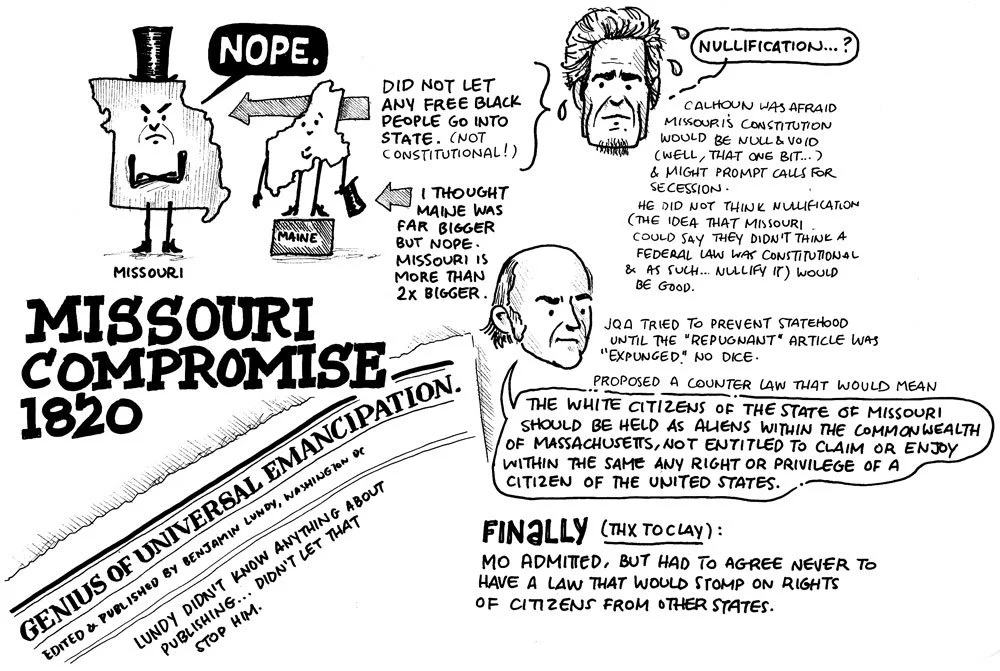 NOPE.
MISSOURI
MAINE
DID NOT LET
ANY FREE BLACK
PEOPLE GO INTO
STATE. (NOT
CONSTITUTIONAL!)
I THOUGHT
MAINE WAS
FAR BIGGER
BUT NOPE.
MISSOURI IS
MORE THAN
2x BIGGER.
NULLIFICATION...?
CALHOUN WAS AFRAID
MISSOURI'S CONSTITUTION
WOULD BE NULL & VOID
(WELL, THAT ONE BIT...)
& MIGHT PROMPT CALLS FOR
SECESSION.
HE DID NOT THINK NULLIFICATION
(THE IDEA THAT MISSOURI
COULD SAY THEY DIDN'T THINK A
FEDERAL LAW WAS CONSTITUTIONAL
& AS SUCH... NULLIFY IT) WOULD
BE GOOD.
MISSOURI
COMPROMISE
1820
GENIUS OF UNIVERSAL EMANCIPATION.
EDITED & PUBLISHED BY BENJAMIN LUNDY, WASHINGTON DC
LUNDY DIDN'T KNOW ANYTHING ABOUT
PUBLISHING... DIDN'T LET THAT
STOP HIM.
JQA TRIED TO PREVENT STATEHOOD
UNTIL THE "REPUGNANT" ARTICLE WAS
"EXPUNGED." NO DICE.
PROPOSED A COUNTER LAW THAT WOULD MEAN
THE WHITE CITIZENS OF THE STATE OF MISSOURI
SHOULD BE HELD AS ALIENS WITHIN THE COMMONWEALTH
OF MASSACHUSETTS, NOT ENTITLED TO CLAIM OR ENJOY
WITHIN THE SAME ANY RIGHT OR PRIVILEGE OF A
CITIZEN OF THE UNITED STATES.
FINALLY (THX TO CLAY):
MO ADMITTED, BUT HAD TO AGREE NEVER TO
HAVE A LAW THAT WOULD STOMP ON RIGHTS
OF CITIZENS FROM OTHER STATES.